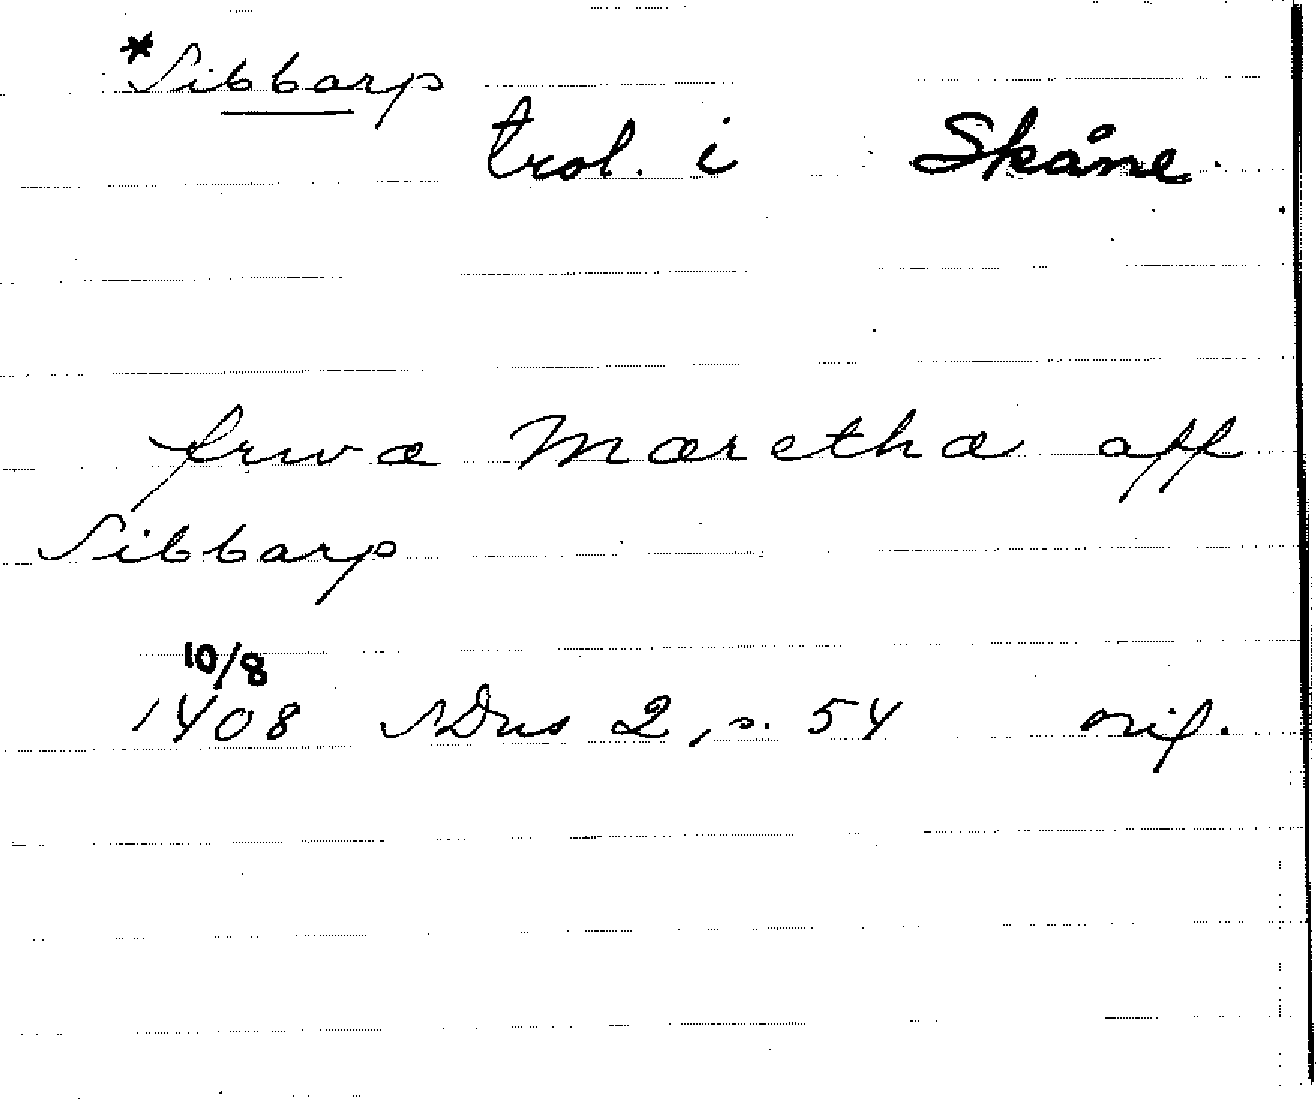 *Sibbarp
trol. i Skåne.
frwæ Mærethæ aff
Sibbarp
10/8
1408 SDns 2, s. 54 orig.